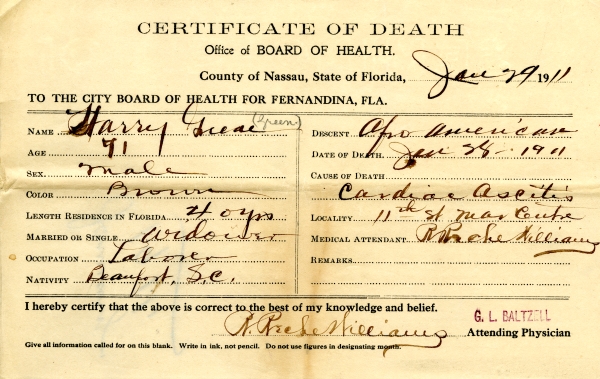 CERTIFICATE OF DEATH
Office of BOARD OF HEALTH.
County of Nassau, State of Florida, Jan 29 1911
TO THE CITY BOARD OF HEALTH FOR FERNANDINA, FLA.
NAME Harry (Green)
AGE 71
SEX. Male
COLOR Brown
LENGTH RESIDENCE IN FLORIDA 40 yrs
MARRIED OR SINGLE Widower
OCCUPATION Laborer
NATIVITY Beaufort, S.C.
DESCENT Afro American
DATE OF DEATH Jan 28 - 1911
CAUSE OF DEATH
Cardiac Ascitis
LOCALITY 11th St near Centre
MEDICAL ATTENDANT Williams
REMARKS
I hereby certify that the above is correct to the best of my knowledge and belief.
Williams
G. L. BALTZELL
Attending Physician
Give all information called for on this blank. Write in ink, not pencil. Do not use figures in designating month.